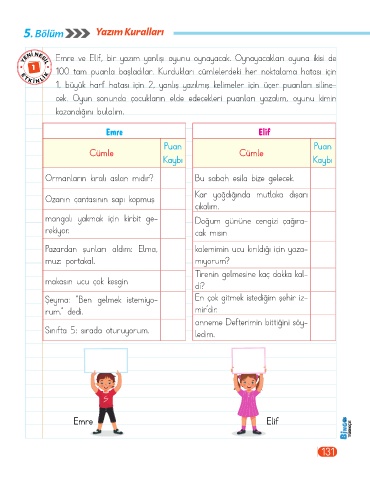 5. Bölüm Yazım Kuralları
YENİ NESİL
1
ETKİNLİK
Emre ve Elif, bir yazım yanlışı oyunu oynayacak. Oynayacakları oyuna ikisi de
100 tam puanla başladılar. Kurdukları cümlelerdeki her noktalama hatası için
1, büyük harf hatası için 2, yanlış yazılmış kelimeler için üçer puanları siline-
cek. Oyun sonunda çocukların elde edecekleri puanları yazalım, oyunu kimin
kazandığını bulalım.
Emre
Cümle
Puan
Kaybı
Ormanların kıralı aslan mıdır?
Ozanın cantasının sapı kopmus
mangalı yakmak için kirbit ge-
rekiyor.
Pazardan şunları aldım: Elma,
muz: portakal.
makasın ucu çok kesgin
Şeyma: "Ben gelmek istemiyo-
rum." dedi.
Sınıfta 5: sırada oturuyorum.
Elif
Cümle
Puan
Kaybı
Bu sabah esila bize gelecek.
Kar yağdığında mutlaka dışarı
çıkalım.
Doğum gününe cengizi çağıra-
cak mısın
kalemimin ucu kırıldığı icin yaza-
mıyorum?
Tirenin gelmesine kaç dakka kal-
dı?
En çok gitmek istediğim şehir iz-
mir'dir.
anneme Defterimin bittiğini söy-
ledim.
Emre
Elif
BİNGO
TÜRKÇE
131